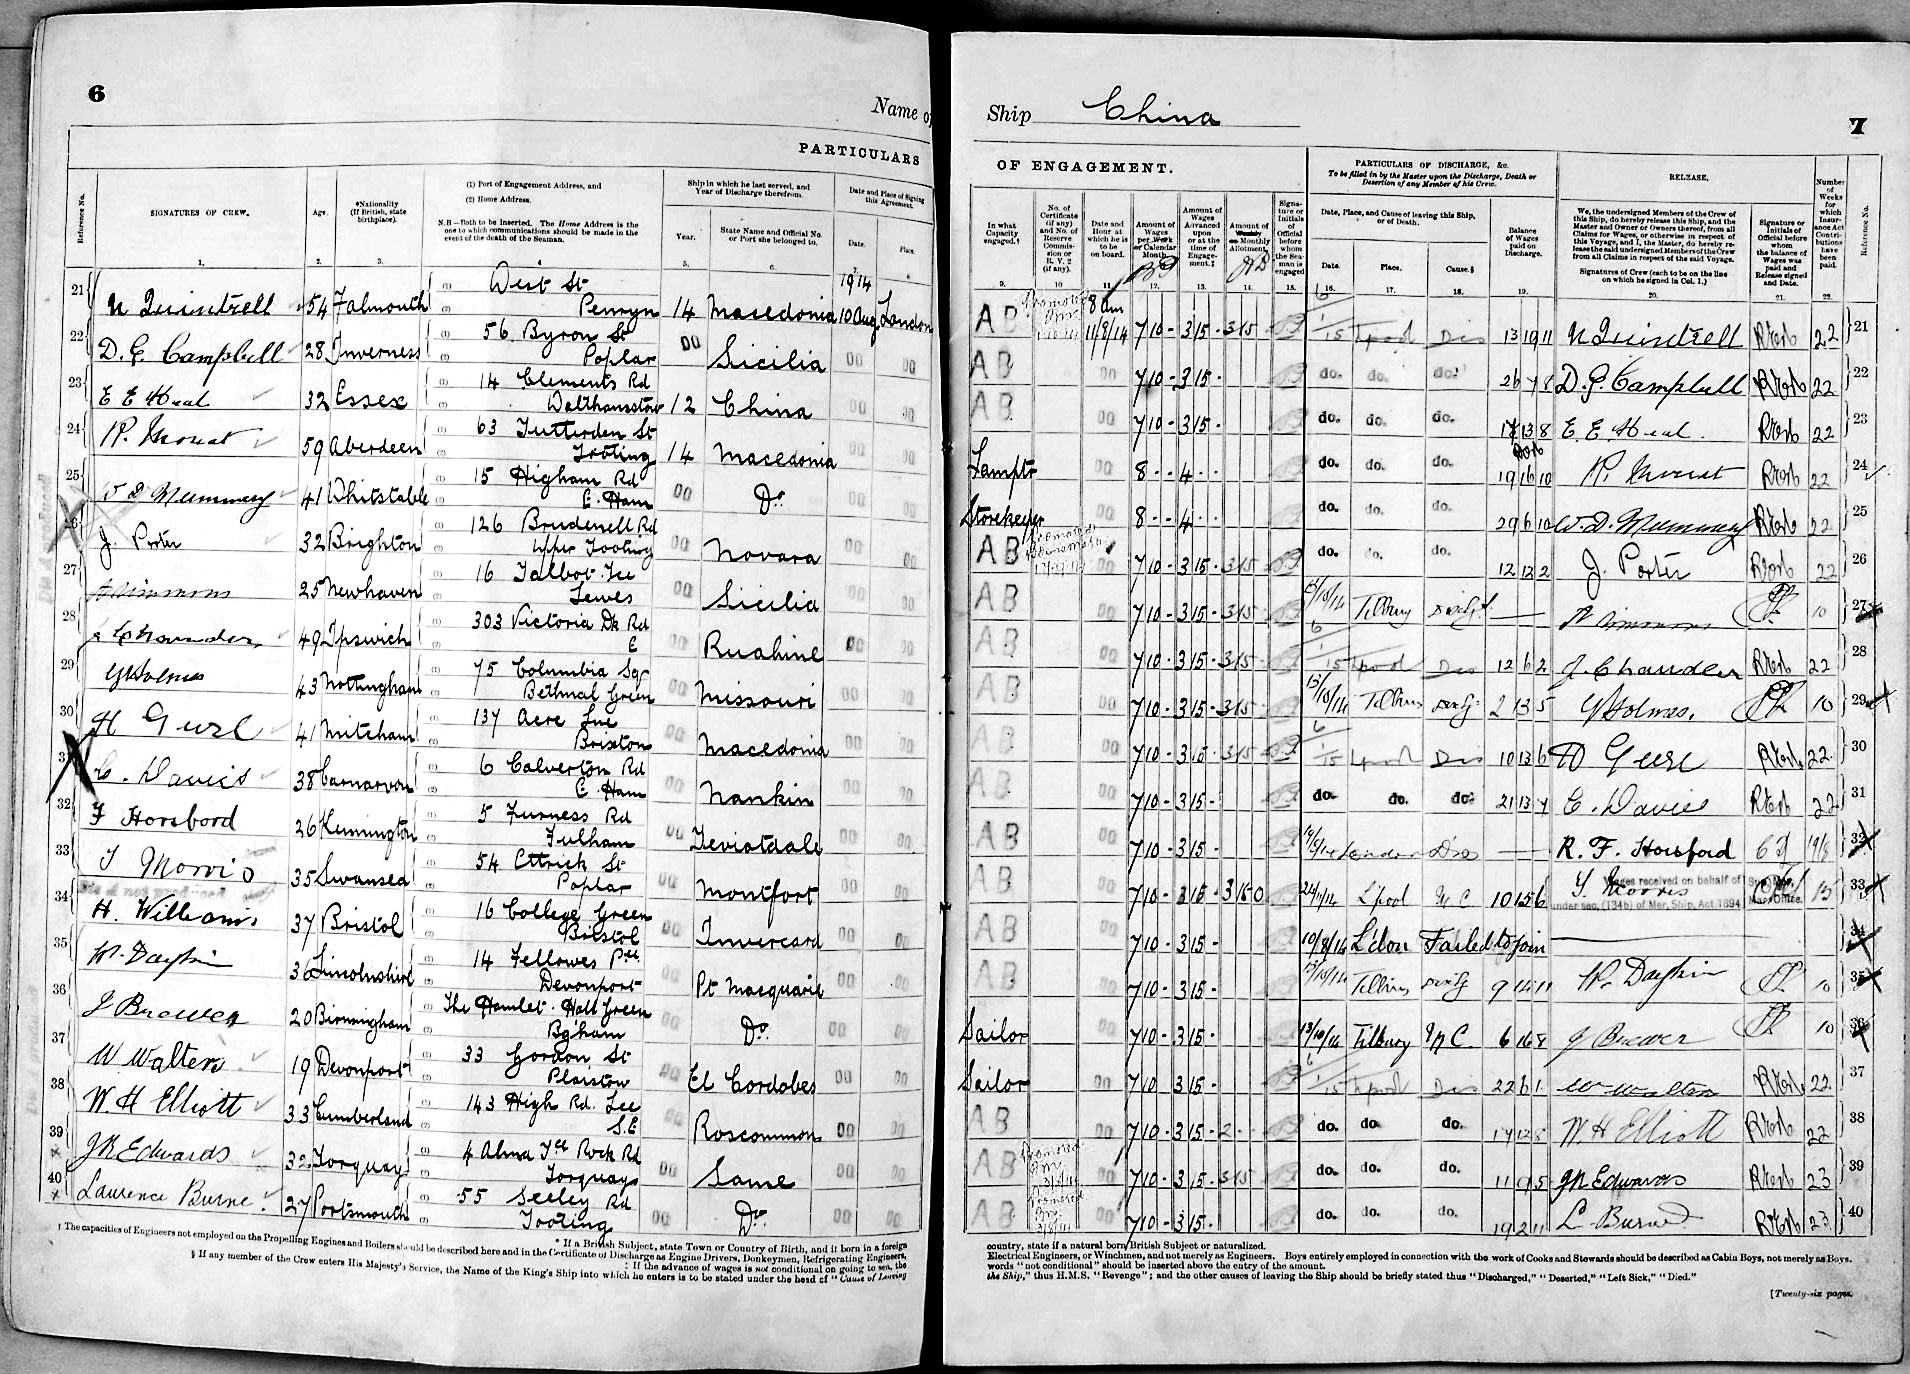 6
Name of
PARTICULARS
Reference No.
SIGNATURES OF CREW.
Age.
*Nationality (If British, state birthplace).
(1) Port of Engagement Address, and
(2) Home Address.
N.B.—Both to be Inserted. The Home Address is the one to which communications should be made in the event of the death of the Seaman.
Ship in which he last served, and Year of Discharge therefrom.
Year.
State Name and Official No. or Port she belonged to.
Date and Place of Signing this Agreement.
Date.
Place.
1. 2. 3. 5. 6.
21 N Quintrell 54 Falmouth West St Penryn 14 Macedonia 1914 10 Aug London
22 D. G. Campbell 28 Inverness 56 Byron St Poplar Do Sicilia Do Do
23 E E Heal 32 Essex 14 Clements Rd Walthamstow 12 China Do Do
24 R. Mouat 59 Aberdeen 63 Tutterden St Tooting 14 Macedonia
25 W D Mummery 41 Whitstable 15 Higham Rd E. Ham Do Do. Do Do
26 J. Porter 32 Brighton 126 Brudenell Rd Upper Tooting Do Novara Do Do
27 Simmons 25 Newhaven 16 Talbot Tce Lewes Do Sicilia Do Do
28 J Chandler 49 Ipswich 303 Victoria Dk Rd E Do Ruahine Do Do
29 G Holmes 43 Nottingham 75 Columbia Sq Bethnal Green Do Missouri Do Do
30 H Geere 41 Mitcham 137 Acre Lne Brixton Do Macedonia Do Do
31 C. Davies 38 Carnarvon 6 Calverton Rd E. Ham Nankin Do Do
32 F Horsford 26 Kennington 5 Furness Rd Fulham Do Teviotdale Do Do
33 T Morris 35 Swansea 54 Ettrick St Poplar Do Montfort Do Do
34 H. Williams 37 Bristol 16 College Green Bristol Do Invercard Do Do
35 36 Lincolnshire 14 Fellowes Pce Devonport Pt Macquarie Do Do
36 J Brewer 20 Birmingham The Hamlet. Hall Green Bg'ham Do Do. Do Do
37 W Walters 19 Devonport 33 Gordon St Plaistow Do El Cordobes Do Do
38 W. H Elliott 33 Cumberland 143 High Rd. Lee S.E Roscommon Do Do
39 J R Edwards 32 Torquay 4 Alma Tce Rock Rd Torquay Do Same Do Do
40 Laurence Burne 27 Portsmouth 55 Seeley Rd Tooting Do Do. Do Do
* If a British Subject, state Town or Country of Birth, and if born in a foreign
† The capacities of Engineers not employed on the Propelling Engines and Boilers should be described here and in the Certificate of Discharge as Engine Drivers, Donkeymen, Refrigerating Engineers,
‡ If the advance of wages is not conditional on going to sea, the
§ If any member of the Crew enters His Majesty's Service, the Name of the King's Ship into which he enters is to be stated under the head of "Cause of Leaving
Ship China
7
OF ENGAGEMENT.
PARTICULARS OF DISCHARGE, &c.
To be filled in by the Master upon the Discharge, Death or Desertion of any Member of his Crew.
RELEASE.
In what Capacity engaged.†
No. of Certificate (if any) and No. of Reserve Commission or R.V. 2 (if any).
Date and Hour at which he is to be on board.
Amount of Wages per Week or Calendar Month.
Amount of Wages Advanced upon or at the time of Engagement.‡
Amount of Weekly or Monthly Allotment.
Signature or Initials of Official before whom the Seaman is engaged
Date, Place, and Cause of leaving this Ship, or of Death.
Date.
Place.
Cause.§
Balance of Wages paid on Discharge.
We, the undersigned Members of the Crew of this Ship, do hereby release this Ship, and the Master and Owner or Owners thereof, from all Claims for Wages, or otherwise in respect of this Voyage, and I, the Master, do hereby release the said undersigned Members of the Crew from all Claims in respect of the said Voyage.
Signatures of Crew (each to be on the line on which he signed in Col. 1.)
Signature or Initials of Official before whom the balance of Wages was paid and Release signed and Date.
Number of Weeks for which Insurance Act Contributions have been paid.
Reference No.
9. 10 11 12. 13. 14. 15. 16. 17. 18. 19. 20. 21. 22.
AB Promoted 8 am 11/8/14 7 10 - 3 15 - 3 15 6/1/15 Lpool Dis 13 19 11 N Quintrell 22 21
AB Do 7 10 - 3 15 - do. do. do. 26 7 8 D. G. Campbell 22 22
AB Do 7 10 - 3 15 - do. do. do. 13 8 E. E. Heal. 22 23
Lamptr 8 - - 4 - - do. do. do. 19 16 10 R. Mouat 22 24
Storekeeper 8 - - 4 - - do. do. do. 29 6 10 W. D. Mummery 22 25
AB Promoted Do 7 10 - 3 15 - 3 15 do. do. do. 12 12 2 J. Porter 22 26
AB Do 7 10 - 3 15 - 3 15 Tilbury — Simmons 10 27
AB Do 7 10 - 3 15 - 3 15 6/1/15 Lpool Dis 12 6 2 J. Chandler 22 28
AB Do 7 10 - 3 15 - 3 15 Tilbury 2 13 5 G Holmes. 10 29
AB Do 7 10 - 3 15 - 3 15 6/1/15 Lpool Dis 10 13 6 H Geere 22 30
AB Do 7 10 - 3 15 - do. do. do. 21 13 7 C. Davies 22 31
AB Do 7 10 - 3 15 - London Dis — R. F. Horsford 32
AB Do 7 10 - 3 15 - 3 15 0 L'pool N C 10 15 6 T. Morris Wages received on behalf of under sec. (134b) of Mer. Ship. Act. 1894 15 33
AB Do 7 10 - 3 15 - 10/8/14 L'don Failed to join 34
AB Do 7 10 - 3 15 - Tilbury 9 14 11 10 35
Sailor 7 10 - 3 15 - Tilbury N C. 6 16 8 J Brewer 10 36
Sailor Do 7 10 - 3 15 - 6/1/15 Lpool Dis 22 6 1 W Walters 22 37
AB Do 7 10 - 3 15 - 2 - do. do. do. 17 12 8 W. H Elliott 22 38
AB Promoted 7 10 - 3 15 - 3 15 do. do. do. 11 9 5 J R Edwards 23 39
AB Promoted 7 10 - 3 15 - do. do. do. 19 2 11 L Burne 23 40
country, state if a natural born British Subject or naturalized.
Electrical Engineers, or Winchmen, and not merely as Engineers. Boys entirely employed in connection with the work of Cooks and Stewards should be described as Cabin Boys, not merely as Boys.
words "not conditional" should be inserted above the entry of the amount.
the Ship," thus H.M.S. "Revenge"; and the other causes of leaving the Ship should be briefly stated thus "Discharged," "Deserted," "Left Sick," "Died."
[Twenty-six pages.